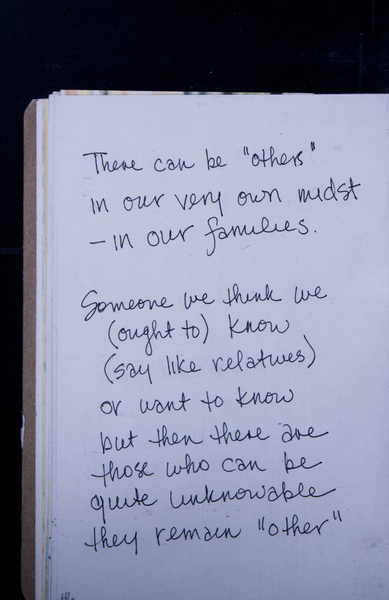 There can be "others"
in our very own midst
- in our families.
Someone we think we
(ought to) know
(say like relatives)
or want to know
but then there are
those who can be
quite unknowable
they remain "other"